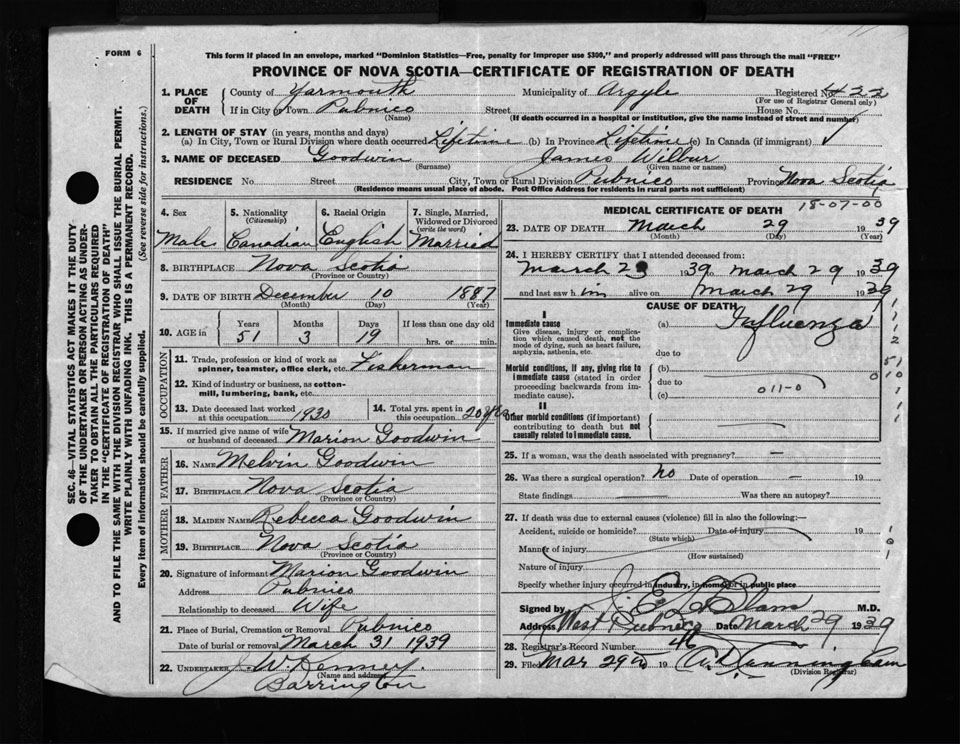 FORM 6
This form if placed in an envelope, marked "Dominion Statistics—Free, penalty for improper use $300," and properly addressed will pass through the mail "FREE"
PROVINCE OF NOVA SCOTIA—CERTIFICATE OF REGISTRATION OF DEATH
1. PLACE OF DEATH
County of Yarmouth Municipality of Argyle Registered No. 422
(For use of Registrar General only)
If in City or Town Pubnico Street House No.
(Name) (If death occurred in a hospital or institution, give the name instead of street and number)
2. LENGTH OF STAY (in years, months and days)
(a) In City, Town or Rural Division where death occurred Lifetime (b) In Province Lifetime (c) In Canada (if immigrant)
3. NAME OF DECEASED Goodwin James Wilbur
(Surname) (Given name or names)
RESIDENCE No. Street City, Town or Rural Division Pubnico Province Nova Scotia
(Residence means usual place of abode. Post Office Address for residents in rural parts not sufficient)
18-07-00
4. Sex 5. Nationality (Citizenship) 6. Racial Origin 7. Single, Married, Widowed or Divorced (write the word)
Male Canadian English Married
8. BIRTHPLACE Nova Scotia
(Province or Country)
9. DATE OF BIRTH December 10 1887
(Month) (Day) (Year)
10. AGE in Years Months Days If less than one day
51 3 19 hrs. or min.
OCCUPATION
11. Trade, profession or kind of work as spinner, teamster, office clerk, etc. Fisherman
12. Kind of industry or business, as cotton-mill, lumbering, bank, etc.
13. Date deceased last worked at this occupation 1930
14. Total yrs. spent in this occupation 20 yrs
15. If married give name of wife or husband of deceased Marion Goodwin
FATHER
16. NAME Melvin Goodwin
17. BIRTHPLACE Nova Scotia
(Province or Country)
MOTHER
18. MAIDEN NAME Rebecca Goodwin
19. BIRTHPLACE Nova Scotia
(Province or Country)
20. Signature of informant Marion Goodwin
Address Pubnico
Relationship to deceased Wife
21. Place of Burial, Cremation or Removal Pubnico
Date of burial or removal March 31 1939
22. UNDERTAKER J. W. Denney.
(Name and address)
Barrington
MEDICAL CERTIFICATE OF DEATH
23. DATE OF DEATH March 29 1939
(Month) (Day) (Year)
24. I HEREBY CERTIFY that I attended deceased from:
March 1939 to March 29 1939
and last saw him alive on March 29 1939
CAUSE OF DEATH
I
Immediate cause
Give disease, injury or complication which caused death, not the mode of dying, such as heart failure, asphyxia, asthenia, etc.
(a) Influenza
due to
Morbid conditions, if any, giving rise to immediate cause (stated in order proceeding backwards from immediate cause).
(b)
due to
(c) 011-0
II
Other morbid conditions (if important) contributing to death but not causally related to immediate cause.
25. If a woman, was the death associated with pregnancy? —
26. Was there a surgical operation? No Date of operation — 19
State findings Was there an autopsy?
27. If death was due to external causes (violence) fill in also the following:—
Accident, suicide or homicide? Date of injury 19
(State which)
Manner of injury
(How sustained)
Nature of injury
Specify whether injury occurred in industry, in home, or in public place
Signed by M.D.
Address West Pubnico Date March 29 1939
28. Registrar's Record Number 46
29. Filed Mar 29 19
(Division Registrar)
SEC. 46—VITAL STATISTICS ACT MAKES IT THE DUTY
OF THE UNDERTAKER OR PERSON ACTING AS UNDER-
TAKER TO OBTAIN ALL THE PARTICULARS REQUIRED
IN THE "CERTIFICATE OF REGISTRATION OF DEATH"
AND TO FILE THE SAME WITH THE DIVISION REGISTRAR WHO SHALL ISSUE THE BURIAL PERMIT.
WRITE PLAINLY WITH UNFADING INK. THIS IS A PERMANENT RECORD.
Every item of information should be carefully supplied. (See reverse side for instructions.)